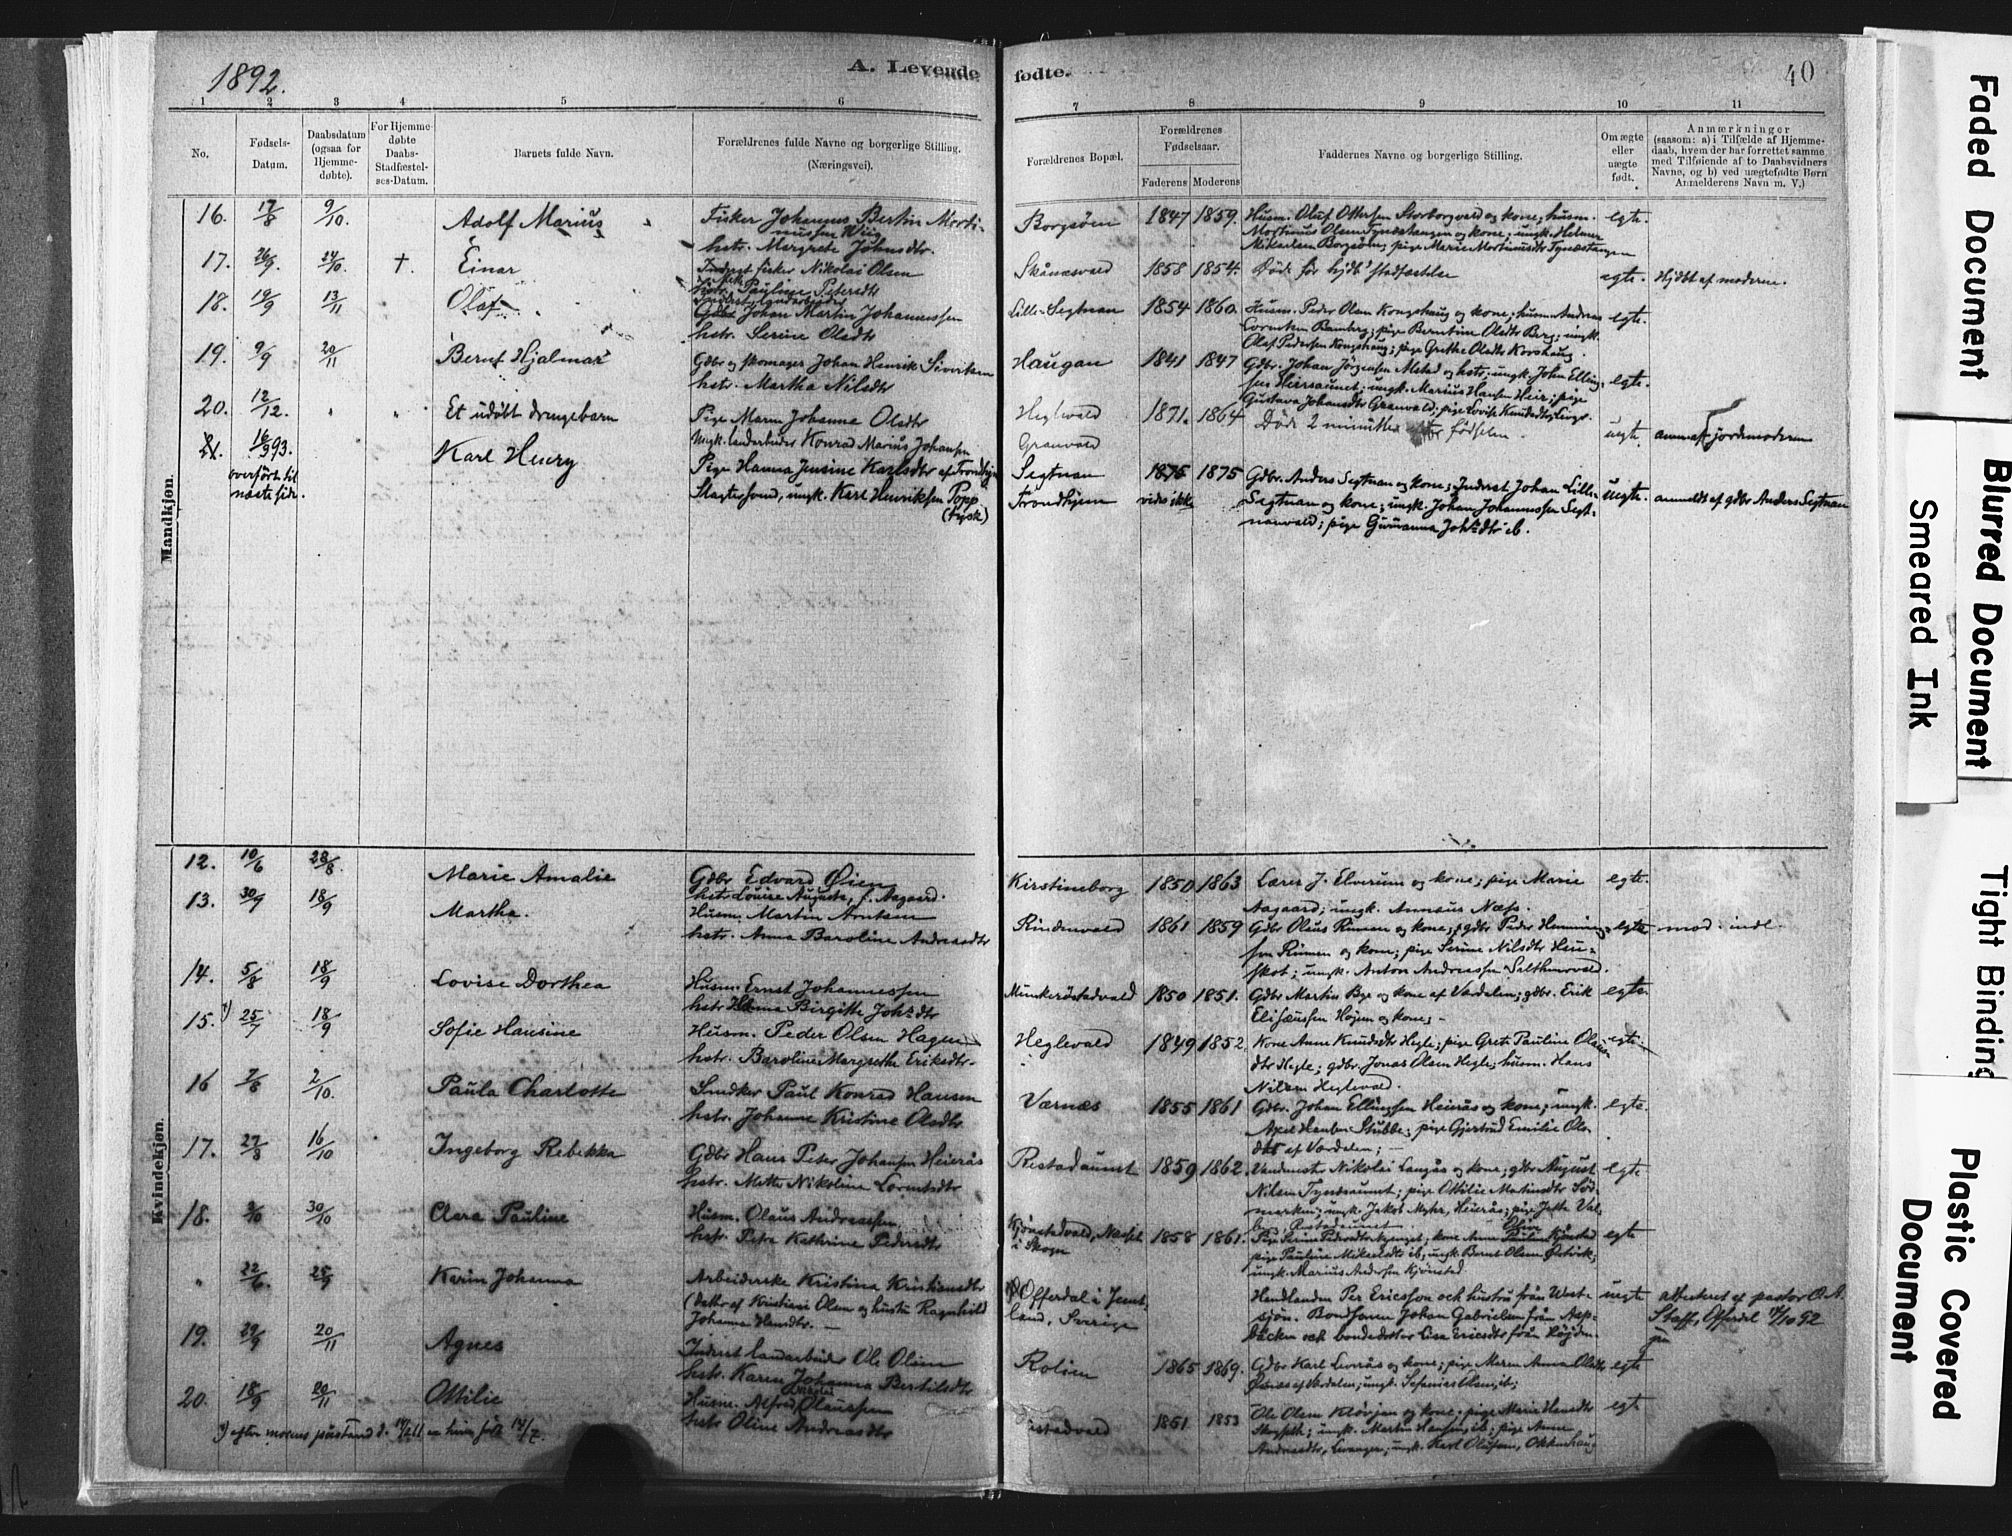 1892.
A. Levende
fødte.
40
1 2 3 4 5 6
7 8 9 10 11
No.
Fødsels-
Datum.
Daabsdatum
(ogsaa for
Hjemme-
døbte).
For Hjemme-
døbte
Daabs-
Stadfæstel-
ses-Datum.
Barnets fulde Navn.
Forældrenes fulde Navne og borgerlige Stilling.
(Næringsvei).
Forældrenes Bopæl.
Forældrenes
Fødselsaar.
Faderens Moderens
Faddernes Navne og borgerlige Stilling.
Om ægte
eller
uægte
født.
Anmærkninger
(saasom: a) i Tilfælde af Hjemme-
daab, hvem der har forrettet samme
med Tilføiende af to Daabsvidners
Navne, og b) ved uægtefødte Børn
Anmelderens Navn m. V.)
Mandkjøn.
16. 17/8 9/10. Adolf Marius
Fisker Johannes Bertin Morti-
nussen Wiig
hstr. Margrete Johnsdtr.
Borgsøen 1847 1859.
Husm. Oluf Ottersen Storborgvald og kone; husm.
Mortinus Olsen Tynæstangen og kone; ungk. Helmer
Mikaelsen Borgsøen; pige Marie Mortinusdtr Tynæstangen
egte.
17. 26/9. 24/10. †. Einar
Inderst fisker Nikolai Olsen
hstr. Pauline Petersdtr
Skånæsvald 1858 1854.
Døde før hjdb' stadfæstelse
egte. Hjdbt af moderen.
18. 19/9 13/11 Olaf
Inderst, landarbeider
Johan Martin Johannessen
hstr. Serine Olsdtr
Lille-Segtnan 1854 1860.
Husm. Peder Olsen Kongshaug og kone; husm. Andreas
Lorntsen Ramberg; pige Berntine Olsdtr Berg; ungk.
Olaf Pedersen Kongshaug; pige Grethe Olsdtr Korshaug.
egte.
19. 9/9 20/11 Bernt Hjalmar
Gdbr og skomager Johan Henrik Sivertsen
hstr. Martha Nilsdtr
Haugan 1841 1847
Gdbr. Johan Jørgensen Mstad og hstr; ungk. John Elling-
sen Heirsaunet; ungk. Marius Hansen Heir; pige
Gustava Johansdtr Granvald; pige Lovise Knudsdtr
egte.
20. 12/12. Et udøbt drengebarn
Pige Maren Johanna Olsdtr
Ungk. landarbeider Konrad Marius Johansen
Heglevald
Granvald
1871. 1864
Døde 2 minutter efter fødselen.
uegte. anm. af jordmoderen
21. 16/9 93.
overført til
næste side.
Karl Henry
Pige Hanna Jensine Karlsdtr af Trondhjem
Slagtersvend, ungk. Karl Henriksen Popp
(tysk)
Segtnan
Trondhjem
1875 1875
vides ikke
Gdbr. Anders Segtnan og kone; Inderst Johan Lille-
Segtnan og kone; ungk. Johan Johannessen Segt-
nanvald; pige Gurianna Johsdtr ib.
uegte. anmeldt af gdbr Anders Segtnan
Kvindekjøn.
12. 10/6 28/8. Marie Amalie
Gdbr Edvard Øien
hstr Louise Augusta, f. Aagaard.
Kirstineborg 1850 1863
Lærer J. Elverum og kone; pige Marie
Aagaard; ungk. Annæus Næss.
egte.
13. 30/9 18/9 Martha.
Husm. Martin Arntsen
hstr. Anna Baroline Andreasdtr
Rindenvald 1861 1859
Gdbr Oleus Rinnan og kone; gdbr Peder Henning-
sen Rinnen og kone; pige Serine Nilsdtr Heu-
skot; ungk. Anton Andreassen Salthenvald.
egte mod: indl.
14. 5/8 18/9 Lovise Dorthea
Husm. Ernst Johannessen
hstr Hanna Birgitte Johsdtr
Munkerøstadvald 1850 1851.
Gdbr Martin Bye og kone af Værdalen; gdbr. Erik
Elisæussen Højem og kone;
egte.
15. 1) 25/7 18/9 Sofie Hansine
Husm. Peder Olsen Hagen
hstr. Baroline Margrethe Eriksdtr.
Heglevald 1849 1852
Kone Anne Knudsdtr Hegle; pige Grete Pauline Olaus-
dtr Hegle; gdbr. Jonas Olsen Hegle; husm. Hans
Nilsen Heglevald.
egte.
16 7/8 2/10. Paula Charlotte
Snedker Paul Konrad Hansen
hstr. Johanne Kristine Olsdtr.
Værnæs 1855 1861
Gdbr. Johan Ellingsen Heirås og kone; ungk.
Axel Hauben Stubbe; pige Gjertrud Emilie Ols-
dtr af Værdalen;
egte.
17. 27/8 16/10 Ingeborg Rebekka
Gdbr Hans Peter Johansen Heierås
hstr. Mette Nikoline Lorentsdtr
Restadaunet 1859 1862.
Vandmester Nikolai Langås og kone; gdbr August
Nilsen Tynæsaunet; pige Ottilie Martinsdtr Sør-
marken; ungk. Jakob Myhr, Heierås; pige Jette Val-
berg, Restadaunet.
egte
18. 3/10 30/10 Clara Pauline
Husm. Olaus Andreassen
hstr. Petra Kathrine Pedersdtr
Kjønstadvald,
i Skogn
1858 1861.
kone Anna Kjønstad
pige Pauline Mikalsdtr ib; ungk. Bernt Olsen
ungk. Marius Andersen Kjønstad.
egte
" 22/6. 25/9 Karin Johanna
Arbeiderske Kristina Kristiansdtr
(datter af Kristian Olsen og hustru Ragnhild
Johanna Hansdtr.
Offerdal i Jemt-
land, Sverige
Handlanden Per Ericsson och hustru från West-
sjön. Bondsonen Johan Gabrielsen från Asp-
bäcken och bondedotter Lisa Ericsdtr från Höjden.
uegte
attesteret af pastor O. A.
Staff, Offerdal 17/10 92
19. 29/9 20/11 Agnes
Inderst landarbeider Ole Olsen
hstr. Karen Johanna Bertilsdtr
Rolsen 1865 1869.
Gdbr Karl Leirås og kone; pige Maren Anna Olsdtr
af Værdalen; ungk.
egte
20. 18/9 20/11 Ottilie
Husm. Alfred Nikolai Olaussen
hstr Oline Andreasdtr
1861 1853
Ole Olsen og kone; pige Marie Hansdtr
ungk. Martin Hansen, ib; pige Anna
Andreasdtr, Levanger; ungk. Karl Olufsen, Okkenhaug
egte
1) efter moerens påstand d. 14/2 11 er hun født 14/7.
Faded Document
Blurred Document
Smeared Ink
Tight Binding
Plastic Covered
Document